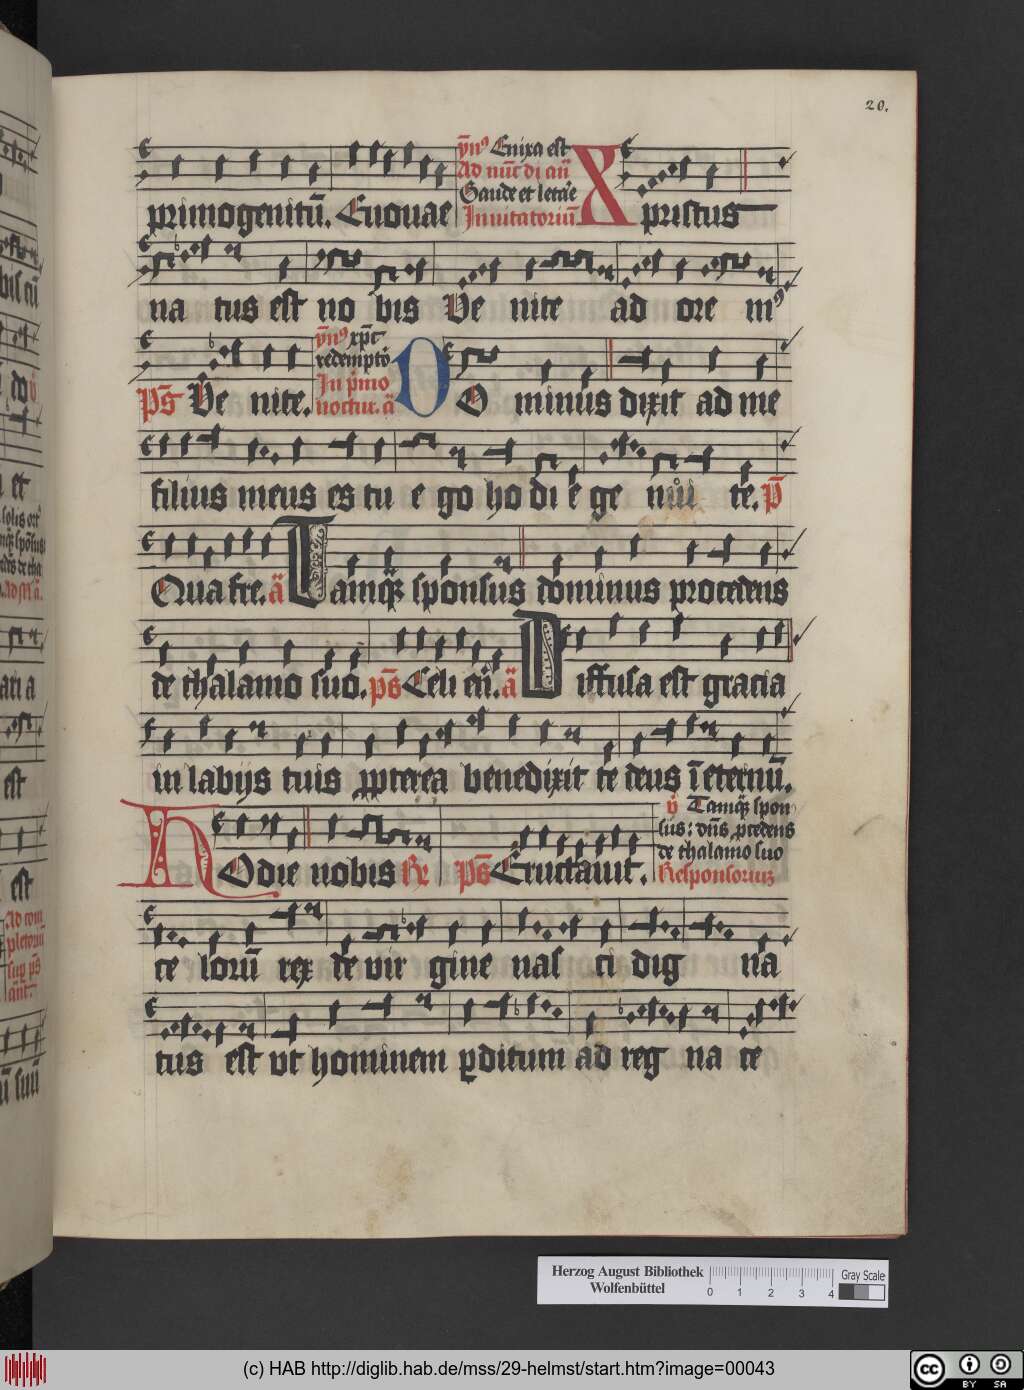 20.
primogenitū. Euouae
ẏmꝰ Enixa est
Ad nūc di añ
Gaude et letar̄e
Inuitatoriū
Xpristus
na tus est no bis Ve nite ad ore mꝰ
ps̄ Ve nite.
ẏmꝰ xp̄e
redemptō
In p̄mo
noctur. ā
DOminus dixit ad me
filius meus es tu e go ho di e ge nui te. p̄
Quare fre. ā Tamq̄ sponsus dominus procedens
de thalamo suo. ps̄ Celi en̄. ā Diffusa est gracia
in labijs tuis ꝓpterea benedixit te deus ī eternū.
HOdie nobis R ps̄ Eructauit.
v̇ Tamq̄ spon
sus: dn̄s ꝓcedens
de thalamo suo
Responsoriuꝫ
ce lorū rex de vir gine nas ci dig na
tus est vt hominem ꝑditum ad reg na ce
Herzog August Bibliothek
Wolfenbüttel
0 1 2 3 4
Gray Scale
(c) HAB http://diglib.hab.de/mss/29-helmst/start.htm?image=00043
cc BY SA